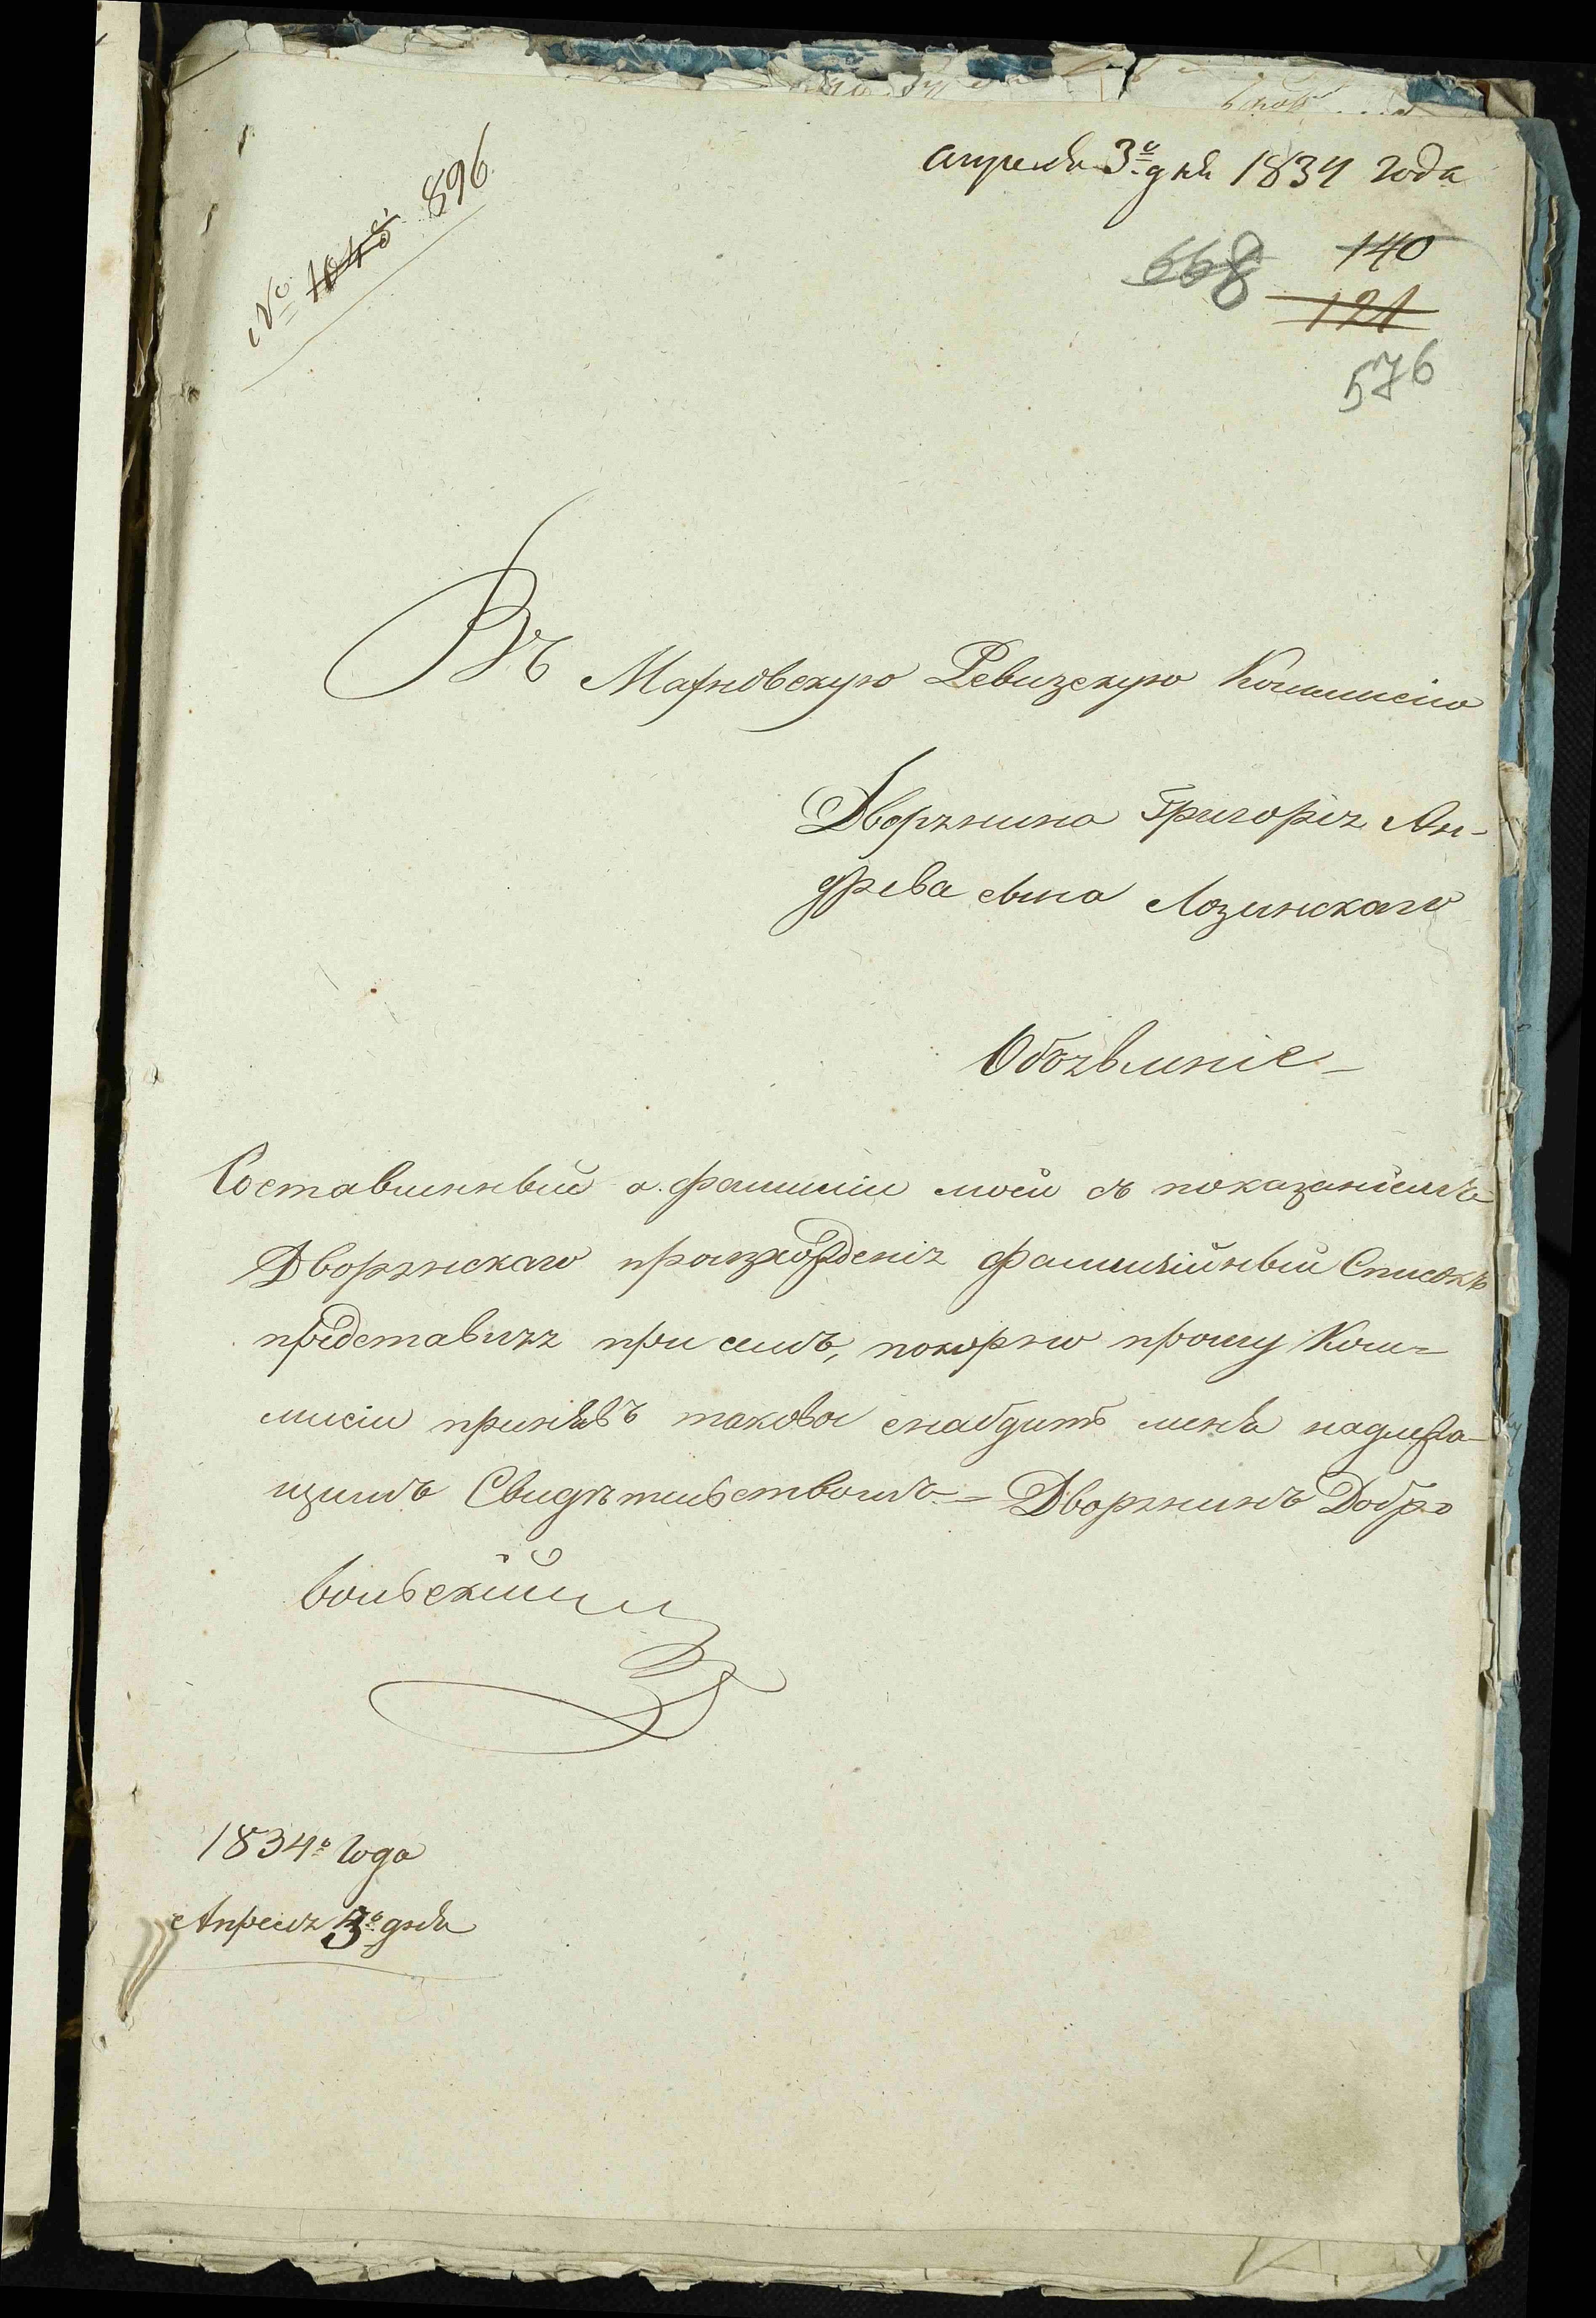 апреля 3го дня 1834 года
№ 1045 896
140
668
121
576
Въ Махновскую Ревизскую Коммисію
Дворянина Григорія Ан-
древа сына Лозинскаго
Обозвленіе
Составленный о фамиліи моей съ показаніемъ
Дворянскаго произхожденія фамилійный Списокъ
представляя при семъ, покорно прошу Ком-
мисіи принявъ таковой снабдить меня надлежа-
щимъ Свидѣтельствомъ = Дворянинъ Добро
вольскій
1834го Года
Апреля 3го дня